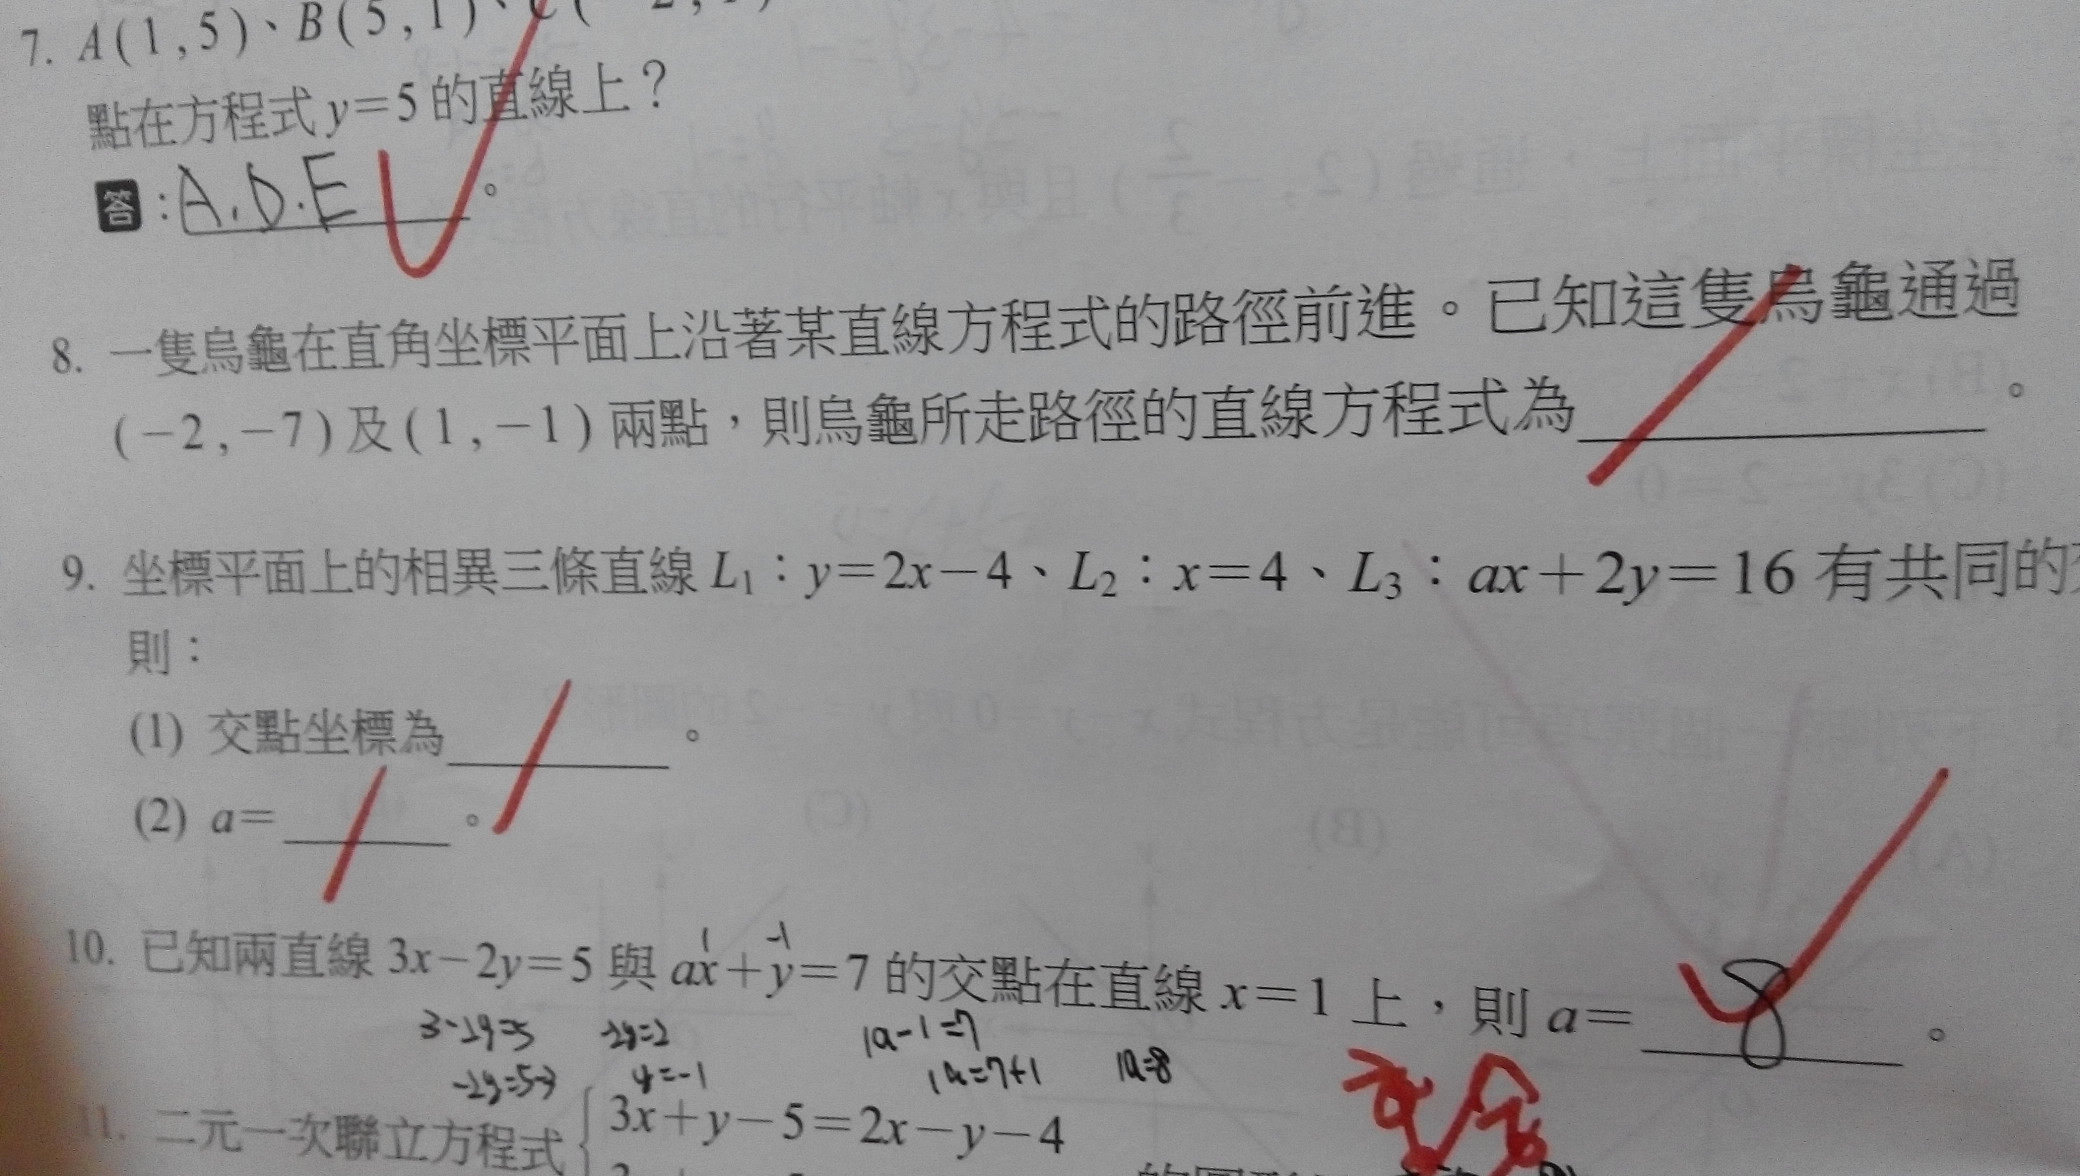 7. A(1,5)、B(5,1)、C(
點在方程式 y=5 的直線上？
答:A.D.E。
8. 一隻烏龜在直角坐標平面上沿著某直線方程式的路徑前進。已知這隻烏龜通過
(-2,-7)及(1,-1)兩點，則烏龜所走路徑的直線方程式為＿＿＿。
9. 坐標平面上的相異三條直線 L₁：y=2x-4、L₂：x=4、L₃：ax+2y=16 有共同的
則：
(1) 交點坐標為＿＿＿。
(2) a=＿＿＿。
1 -1
10. 已知兩直線 3x-2y=5 與 ax+y=7 的交點在直線 x=1 上，則 a=8。
3-2y=5 -2y=2 1a-1=7
-2y=5-3 y=-1 1a=7+1 1a=8
11. 二元一次聯立方程式 3x+y-5=2x-y-4